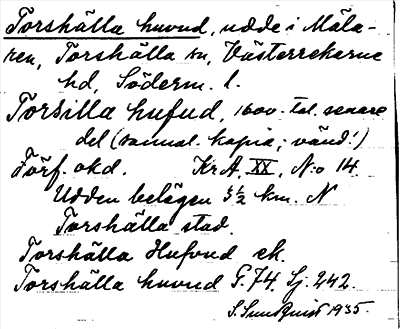 Torshälla huvud, udde i Mäla-
ren, Torshälla sn, Västerrekarne
hd, Söderm. l.
Torsilla hufud, 1600-tal. senare
del (samml. kopia; vänd!)
Förf. okd. KrA, XX, N:o 14.
Udden belägen 3½ km. N
Torshälla stad.
Torshälla Hufvud ek.
Torshälla huvud G. 74. Sj. 242.
S. Sundquist 1935.